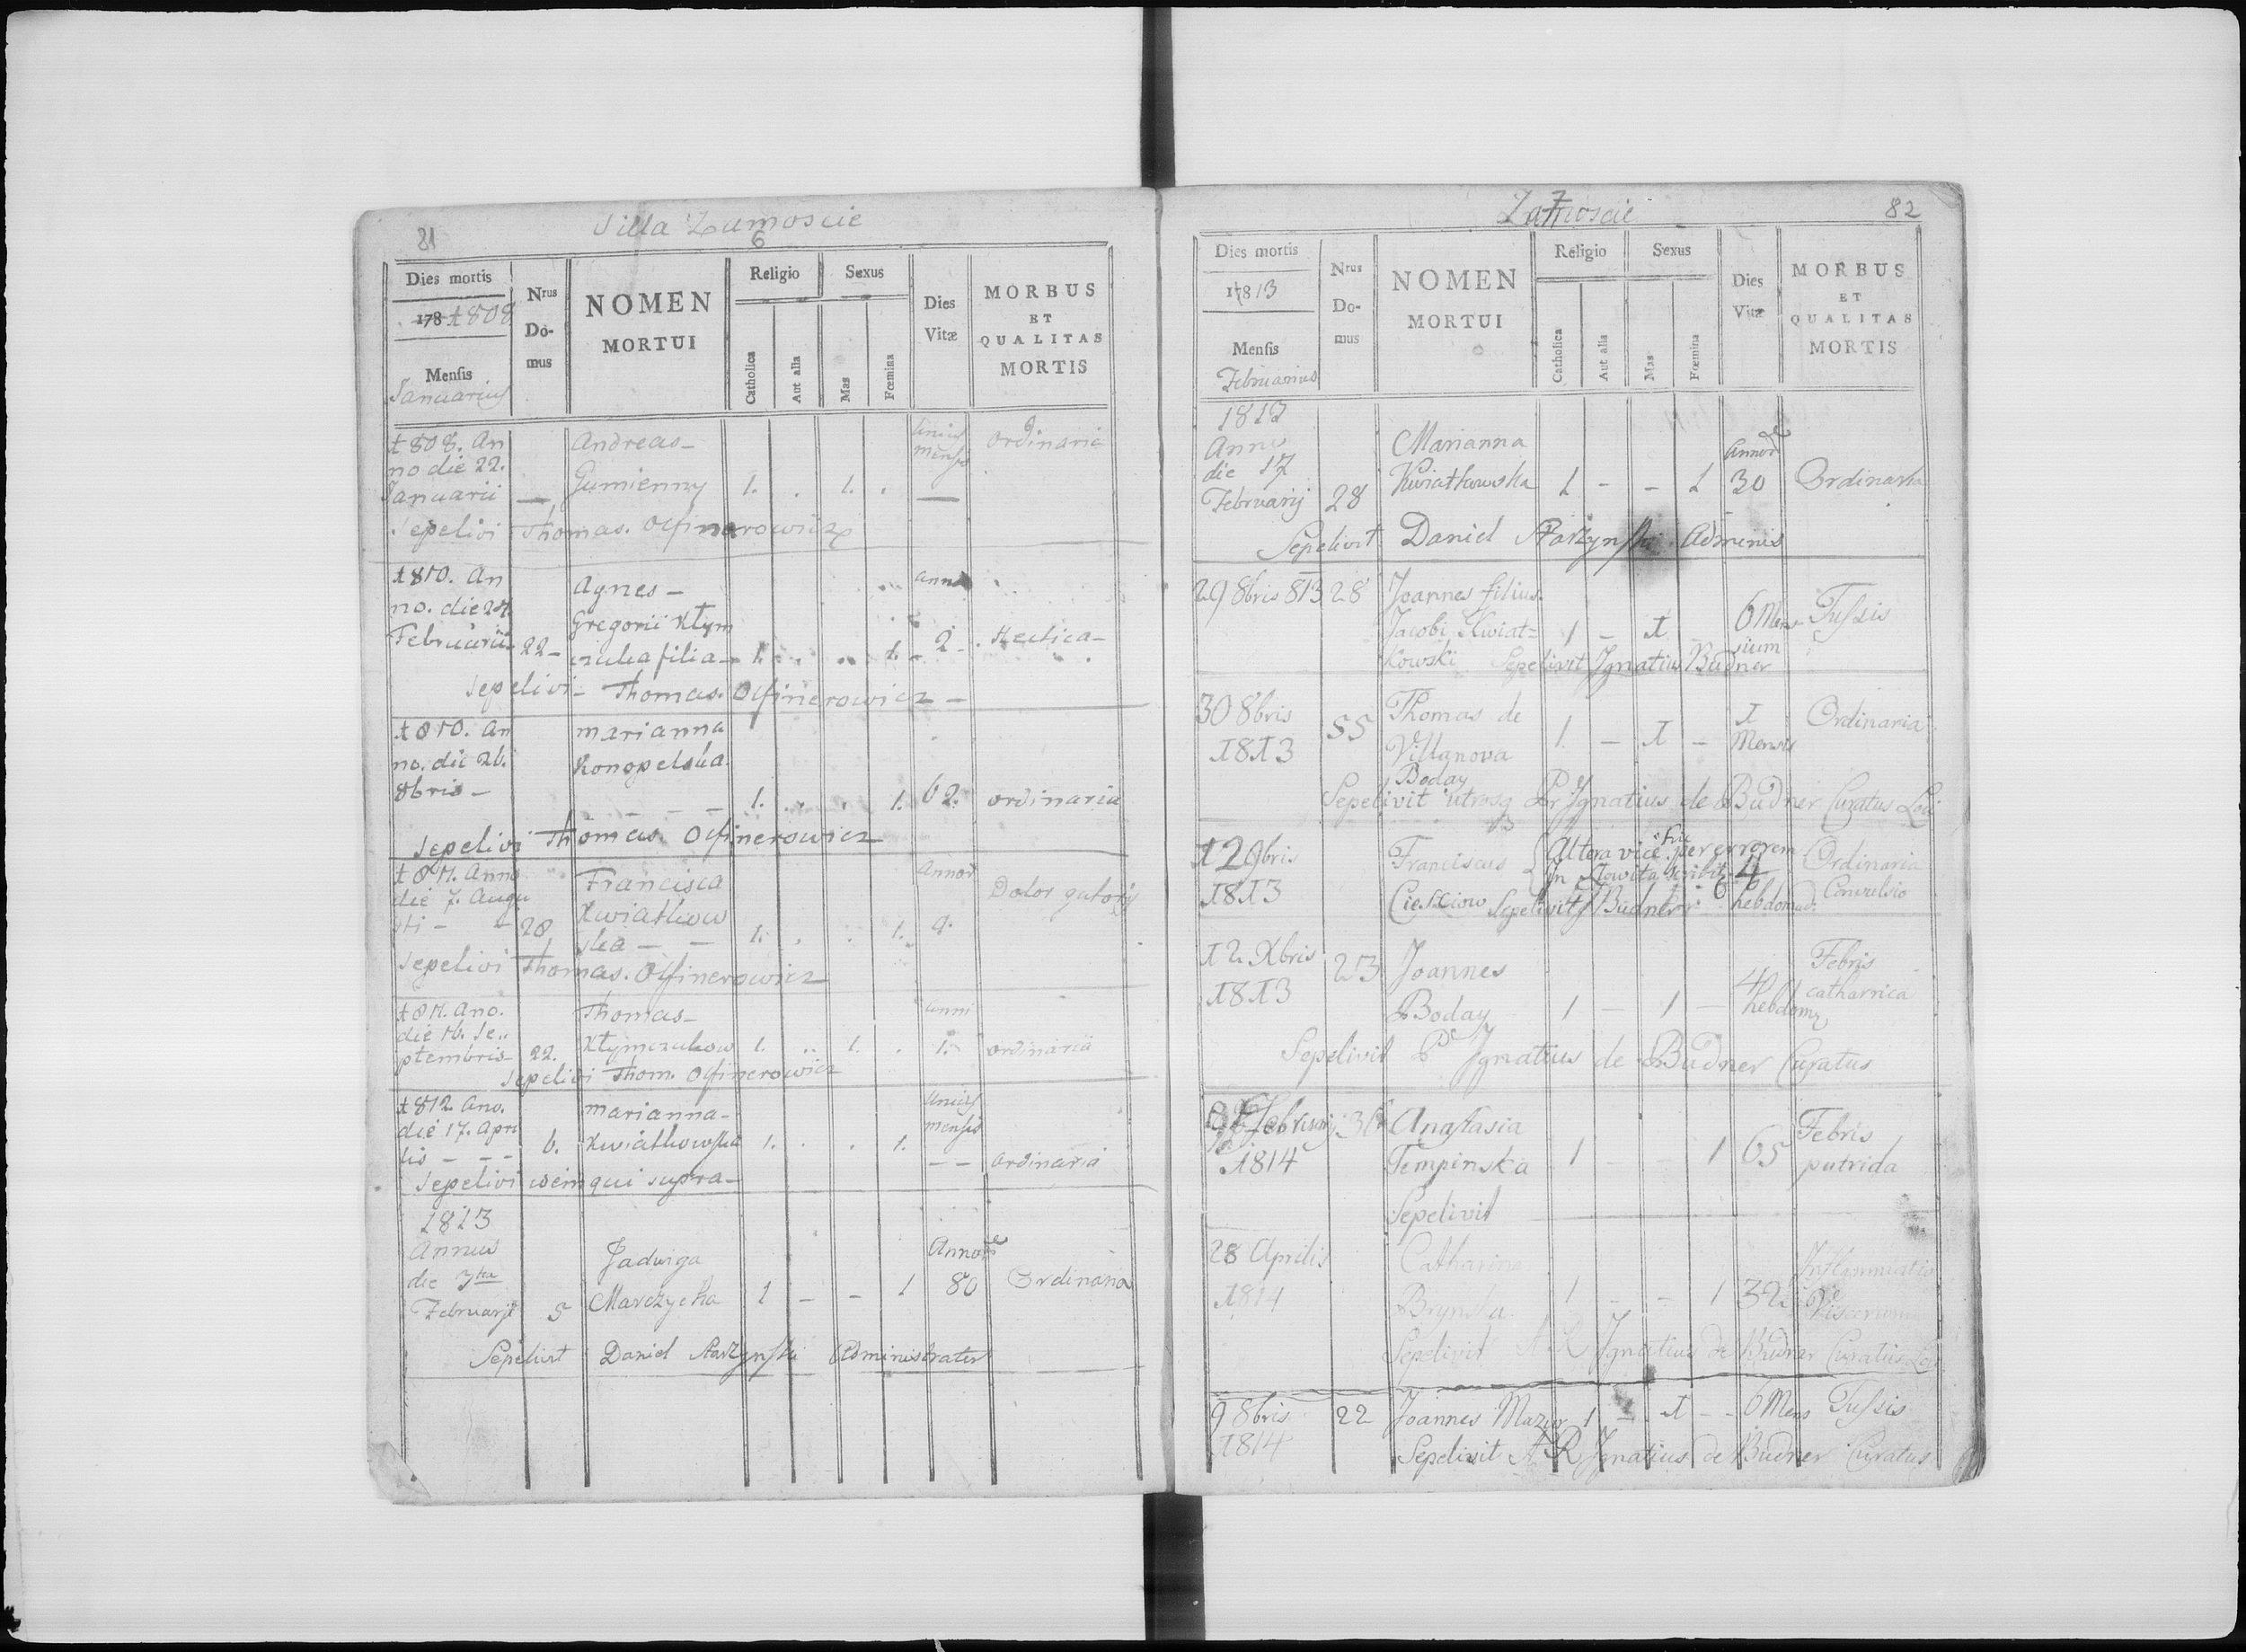 81
Villa Zamoscie
6
Dies mortis
178 1808
Mensis
Januarius
Nrus
Do-
mus
NOMEN
MORTUI
Religio
Catholica
Aut alia
Sexus
Mas
Fœmina
Dies
Vitæ
MORBUS
ET
QUALITAS
MORTIS
1808. An
no die 22.
Januarii —
Andreas —
Gumienny 1. . 1. .
Unius
mensis
—
ordinaria
Sepelivi Thomas.
1810. An
no. die
Februarii 22 —
Agnes —
Gregorii Klym
czuka filia — 1. . .. 1. 2 . Hectica —
Sepelivi — Thomas.
1810. An
no. die 26.
8bris —
Marianna
Konopelska
1. . . 1. 62. ordinaria
Sepelivi Thomas.
1811. Anno
die 7. Augu
sti — 28
Francisca
Kwiatkow
ska — — 1. . . 1.
Annor
Dolor
Sepelivi Thomas.
1811. Ano.
die 16. Se..
ptembris 22.
Thomas —
Klymczukow 1. .. 1. .
anni
1. ordinaria
Sepelivi Thom.
1812. Ano.
die 17. Apri
lis — — — 6.
Marianna —
Kwiatkowska 1. . . 1.
Unius
mensis
— — ordinaria
Sepelivi idem qui supra —
1813
Annus
die 3tia
Februarji 5
Jadwiga
Marczycka 1 — — 1
Annor
80 Ordinaria
Sepelivit Daniel Administrator
82
Zamoscie
7
Dies mortis
17813
Mensis
Februarius
Nrus
Do-
mus
NOMEN
MORTUI
Religio
Catholica
Aut alia
Sexus
Mas
Fœmina
Dies
Vitæ
MORBUS
ET
QUALITAS
MORTIS
1813
Anno
die 17
Februarij 28
Marianna
Kwiatkowska 1 - - 1
Annor
30 Ordinaria
Sepelivit Daniel Adminis
29 8bris 813 28 Joannes filius
Jacobi Kwiat=
kowski 1 — 1 6 Men
sium Tussis
Sepelivit Ignatius Budner
30 8bris
1813
55 Thomas de
Villanova
Boday
1. — 1 — 1
Mensis Ordinaria
Sepelivit utrosq Pr Ignatius de Budner Curatus Loci
12 9bris
1813
Franciscus
Altera vice hic per errorem
Sepelivit J Budner
hebdomad.
Ordinaria
Convulsio
12 Xbris
1813
23 Joannes
Boday 1 — 1 — 4
hebdom
Febris
catharrica
Sepelivit Pr Ignatius de Budner Curatus
Februarij
1814
Anastasia
Tempinska 1 — — 1 65
Febris
putrida
Sepelivit
28 Aprilis
1814
Catharina
Brynska 1 - - 1 32
Inflammatio
Viscerum
Sepelivit A R Ignatius de Budner Curatus Loci
9 8bris
1814
22 Joannes Mazur 1 — 1 — 6 Mens Tussis
Sepelivit A R Ignatius de Budner Curatus